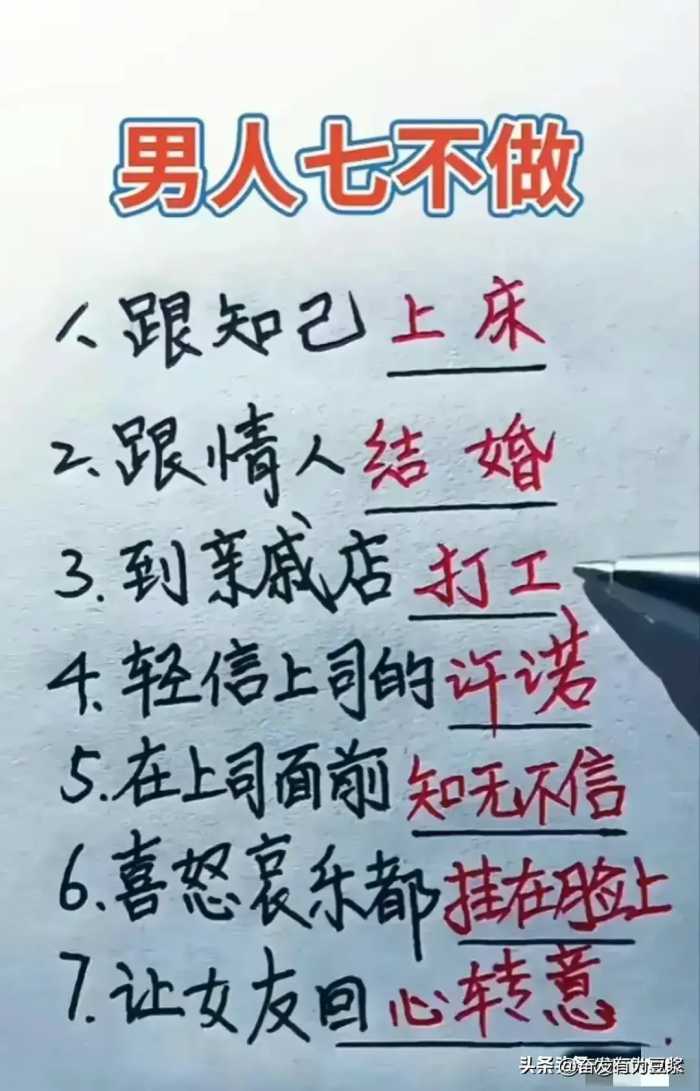 男人七不做
1、跟知己上床
2、跟情人结婚
3.到亲戚店打工
4、轻信上司的许诺
5.在上司面前知无不信
6.喜怒哀乐都挂在脸上
7.让女友回心转意.
头条 @奋发有为豆浆